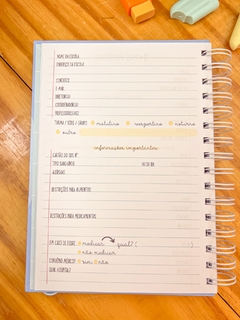 NOME DA ESCOLA:
ENDEREÇO DA ESCOLA:
CONTATO:
E-MAIL:
DIRETOR(A):
COORDENADOR(A):
PROFESSOR(A)(ES):
TURMA / SÉRIE / GRUPO: matutino vespertino noturno
outro
informações importantes
CARTÃO DO SUS Nº:
TIPO SANGUÍNEO: FATOR RH:
ALERGIAS:
RESTRIÇÕES PARA ALIMENTOS:
RESTRIÇÕES PARA MEDICAMENTOS:
EM CASO DE FEBRE: medicar qual? (
não medicar
CONVÊNIO MÉDICO? sim não
QUAL HOSPITAL?